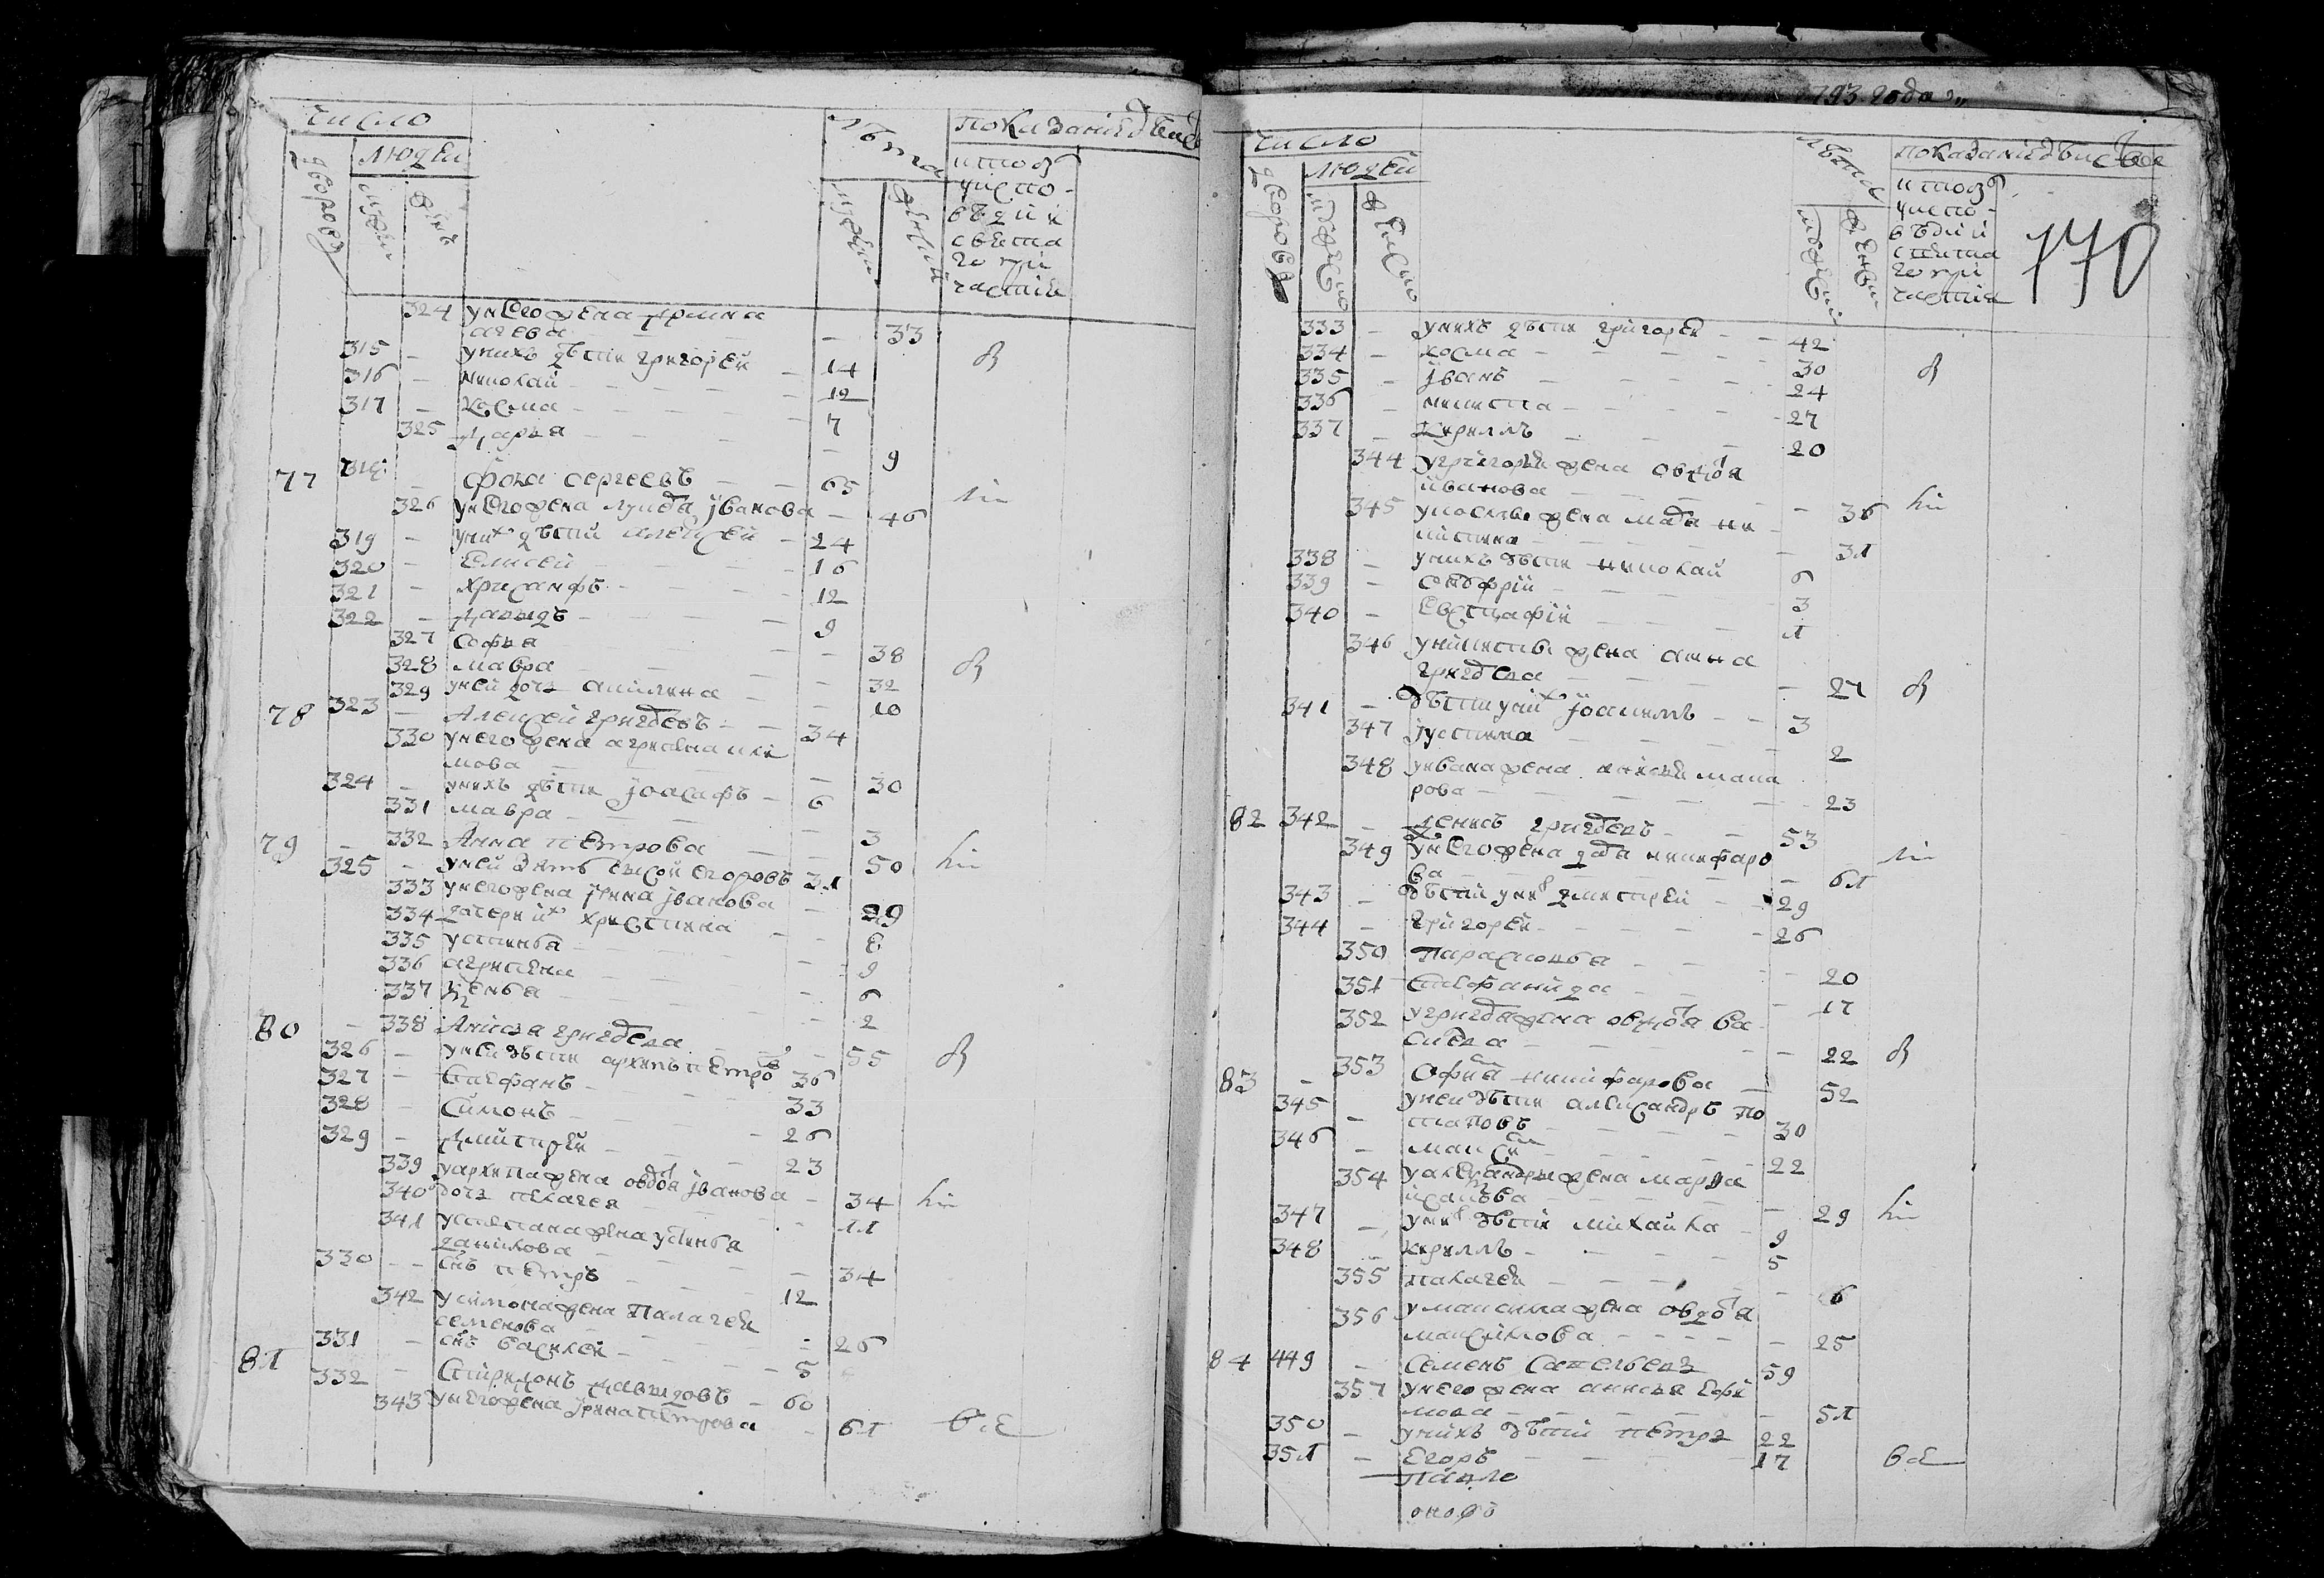 число
людей
дворовъ
мужеска
женска
лѣта
мужеска
женска
показанiе дѣйс
кто з
у испо-
вѣди и
свята
го при
частiя
324 у него жена Домна
агева — — 33
315 — у нихъ дѣти григорей — 14
316 — николай — 12
317 — косма — 7
325 дарья — 9
77 318 — фока сергеевъ — 65
326 у него жена иванова — 46
319 — у них дѣтй алеѯей — 24
320 — Елисей — 16
321 — хрисанфъ — 12
322 — давыдъ — 9
327 софья — 38
328 мавра — 32
329 у ней дочь акилина — 10
78 323 — Алеѯей григоревъ — 34
330 у него жена агрипена аки
мова — 30
324 — у нихъ дѣти јоасафъ — 6
331 мавра — 3
79 — 332 Анна петрова — 50
325 — у ней зять сысой егоровъ 31
333 у него жена јрина јванова — 29
334 дочери их христина — 8
335 устинья — 9
336 агрипена — 6
337 — 2
80 — 338 Анисья григорева — 55
326 — у ней дѣти архипъ петро 36
327 — Стефанъ — 33
328 — Симонъ — 26
329 — дмитрей — 23
339 у архипа жена овдотя јванова — 34
340 дочь пелагея — 11
341 у степана жена устинья
данилова — 34
330 — снъ петръ — 12
342 у симона жена Палагея
семенова — 26
331 — снъ василей — 5
81 332 — Спиридонъ давыдовъ — 60
343 у него жена јрина петрова — 61
793 года
число
людей
дворовъ
мужеско
женско
лѣта
мужески
женски
показанiе дѣйс
кто з
у испо-
вѣди и
свята
го при
частiя
170
333 — у нихъ дѣти григорей — 42
334 — косма — 30
335 — јванъ — 24
336 — никита — 27
337 — Кирилъ — 20
344 у григорья жена овдотя
иванова — 36
345 у космы жена ни
китина — 31
338 — у нихъ дѣти николай 6
339 — 3
340 — Евстафiй — 1
346 у никиты жена анна
григорева — 27
341 — дѣти у них јоакимъ — 3
347 јустина — 2
348 у ивана жена анисья мака
рова — 23
82 342 — денисъ григоревъ — 53
349 у него жена никифоро
ва — 61
343 — дѣтй у них дмитрей — 29
344 — григорей — 26
350 Парасковья — 20
351 Стефанида — 17
352 у григорья жена овдотя ва
силева — 22
83 — 353 Софиа никифарова — 52
345 — у ней дѣти алеѯандръ по
таповъ — 30
346 — маѯим — 22
354 у алеѯандры жена марѳа
исакова — 29
347 — у них дѣти михайла 9
348 — кирилъ — 5
355 палагея — 6
356 у маѯима жена овдотя
маѯимова — 25
84 449 — Семенъ Савельевъ 59
357 у него жена анисья ефи
мова — 51
350 — у нихъ дѣтй петръ 22
351 — Егоръ — 17
Павло
онофр